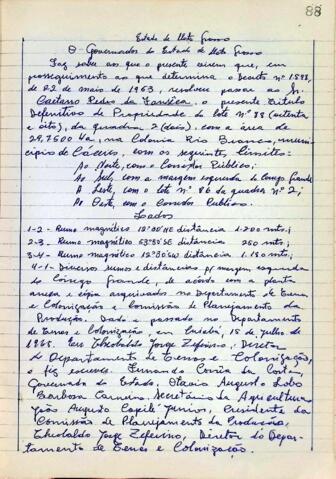 88
Estado de Mato Grosso
O Governador do Estado de Mato Grosso
Faz saber aos que o presente virem que, em
prosseguimento ao que determina o Decreto nº 1598,
de 22 de maio de 1953, resolveu passar ao Sr.
Caetano Pedro da Fonsêca, o presente Título
Definitivo de Propriedade do lote nº 88 (oitenta
e oito), da quadra 2 (dois), com a área de
29,7600 Ha, na Colonia Rio Branco, muni-
cípio de Cáceres, com os seguintes limites:
Ao Norte, com o Corredor Público;
Ao Sul, com a margem esquerda do Corrego Grande
A Leste, com o lote nº 86 da quadra nº 2;
Ao Oeste, com o Corredor Publico.
Lados
1-2 - Rumo magnético distância 1.200 mts;
2-3 - Rumo magnético distância 250 mts;
3-4 - Rumo magnético distância 1.180 mts;
4-1 - Diversos rumos e distâncias p/ margem esquerda
do Corrego Grande, de acôrdo com a planta
anexa e cópia arquivadas no Departamento de Terras
e Colonização e Comissão de Planejamento da
Produção. Dado e passado no Departamento
de Terras e Colonização, em Cuiabá, 15 de Julho de
1965. Eu Theobaldo Jorge Zeferino, Diretor
do Departamento de Terras e Colonização,
o fiz escrever. Fernando Corrêa da Costa,
Governador do Estado, Otavio Augusto Lobo
Barbosa Carneiro, Secretário da Agricultura
João Augusto Capilé Junior, Presidente da
Comissão de Planejamento da Produção,
Theobaldo Jorge Zeferino, Diretor do Depar-
tamento de Terras e Colonização.